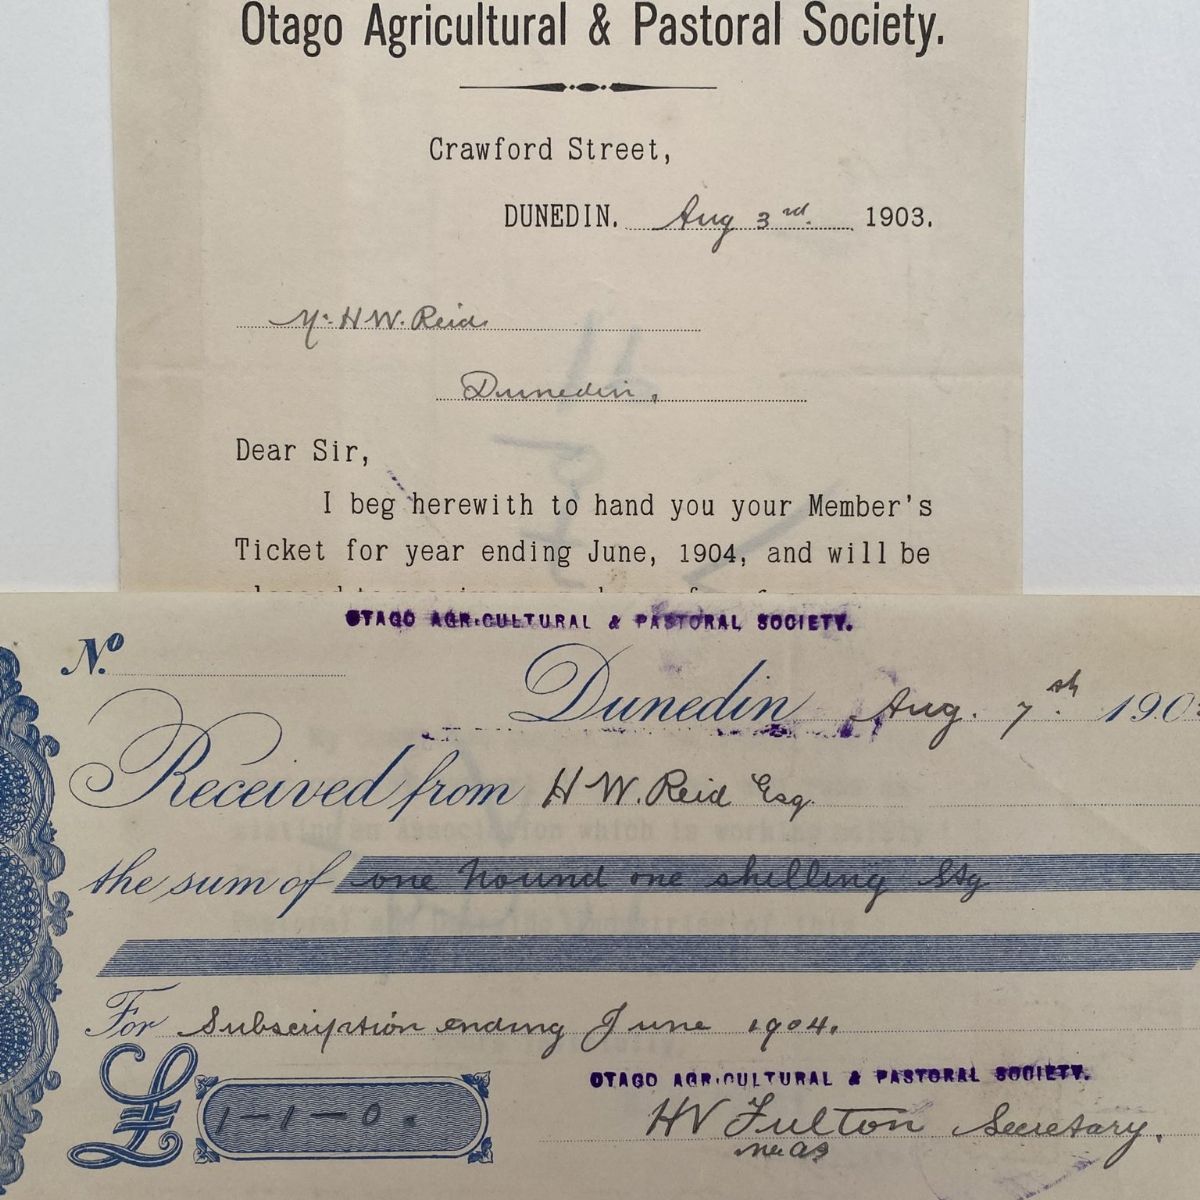 Otago Agricultural & Pastoral Society.
Crawford Street,
DUNEDIN. Aug 3rd. 1903.
Mr. H W. Reid
Dunedin.
Dear Sir,
I beg herewith to hand you your Member's
Ticket for year ending June, 1904, and will be
OTAGO AGRICULTURAL & PASTORAL SOCIETY.
No
Dunedin Aug. 7th. 190
Received from H W. Reid Esq.
the sum of one Pound one shilling Stg
For Subscription ending June 1904.
OTAGO AGRICULTURAL & PASTORAL SOCIETY.
£ 1-1-0.
HV Fulton Secretary.